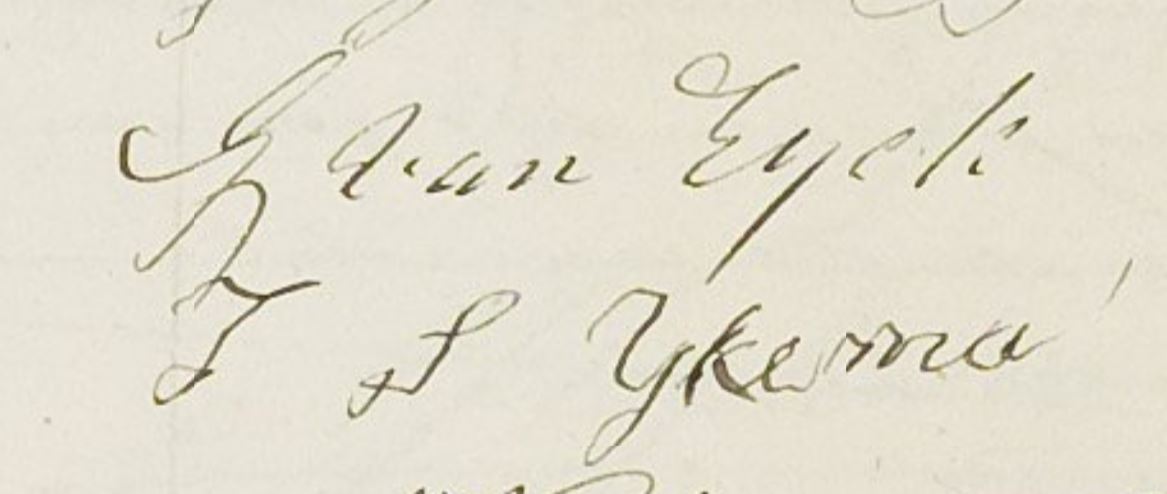 G van Eyck
T S Ykema